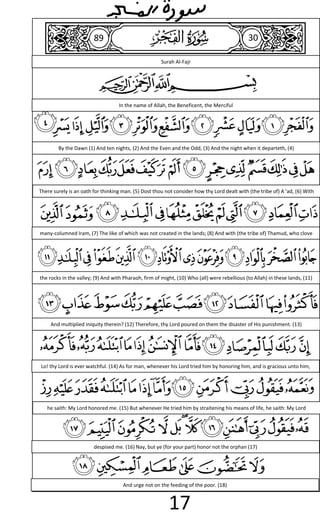 سورة الفجر
89 سُورَةُ الفَجۡرِ 30
Surah Al-Fajr
بِسۡمِ ٱللَّهِ ٱلرَّحۡمَٰنِ ٱلرَّحِيمِ
In the name of Allah, the Beneficent, the Merciful
وَٱلۡفَجۡرِ ١ وَلَيَالٍ عَشۡرٖ ٢ وَٱلشَّفۡعِ وَٱلۡوَتۡرِ ٣ وَٱلَّيۡلِ إِذَا يَسۡرِ ٤
By the Dawn (1) And ten nights, (2) And the Even and the Odd, (3) And the night when it departeth, (4)
هَلۡ فِي ذَٰلِكَ قَسَمٞ لِّذِي حِجۡرٍ ٥ أَلَمۡ تَرَ كَيۡفَ فَعَلَ رَبُّكَ بِعَادٍ ٦ إِرَمَ
There surely is an oath for thinking man. (5) Dost thou not consider how thy Lord dealt with (the tribe of) A 'ad, (6) With
ذَاتِ ٱلۡعِمَادِ ٧ ٱلَّتِي لَمۡ يُخۡلَقۡ مِثۡلُهَا فِي ٱلۡبِلَٰدِ ٨ وَثَمُودَ ٱلَّذِينَ
many-columned Iram, (7) The like of which was not created in the lands; (8) And with (the tribe of) Thamud, who clove
جَابُواْ ٱلصَّخۡرَ بِٱلۡوَادِ ٩ وَفِرۡعَوۡنَ ذِي ٱلۡأَوۡتَادِ ١٠ ٱلَّذِينَ طَغَوۡاْ فِي ٱلۡبِلَٰدِ ١١
the rocks in the valley; (9) And with Pharaoh, firm of might, (10) Who (all) were rebellious (to Allah) in these lands, (11)
فَأَكۡثَرُواْ فِيهَا ٱلۡفَسَادَ ١٢ فَصَبَّ عَلَيۡهِمۡ رَبُّكَ سَوۡطَ عَذَابٍ ١٣
And multiplied iniquity therein? (12) Therefore, thy Lord poured on them the disaster of His punishment. (13)
إِنَّ رَبَّكَ لَبِٱلۡمِرۡصَادِ ١٤ فَأَمَّا ٱلۡإِنسَٰنُ إِذَا مَا ٱبۡتَلَىٰهُ رَبُّهُۥ فَأَكۡرَمَهُۥ
Lo! thy Lord is ever watchful. (14) As for man, whenever his Lord tried him by honoring him, and is gracious unto him,
وَنَعَّمَهُۥ فَيَقُولُ رَبِّيٓ أَكۡرَمَنِ ١٥ وَأَمَّآ إِذَا مَا ٱبۡتَلَىٰهُ فَقَدَرَ عَلَيۡهِ رِزۡقَ
he saith: My Lord honored me. (15) But whenever He tried him by straitening his means of life, he saith: My Lord
هُۥ فَيَقُولُ رَبِّيٓ أَهَٰنَنِ ١٦ كَلَّاۖ بَل لَّا تُكۡرِمُونَ ٱلۡيَتِيمَ ١٧
despised me. (16) Nay, but ye (for your part) honor not the orphan (17)
وَلَا تَحَٰٓضُّونَ عَلَىٰ طَعَامِ ٱلۡمِسۡكِينِ ١٨
And urge not on the feeding of the poor. (18)
17